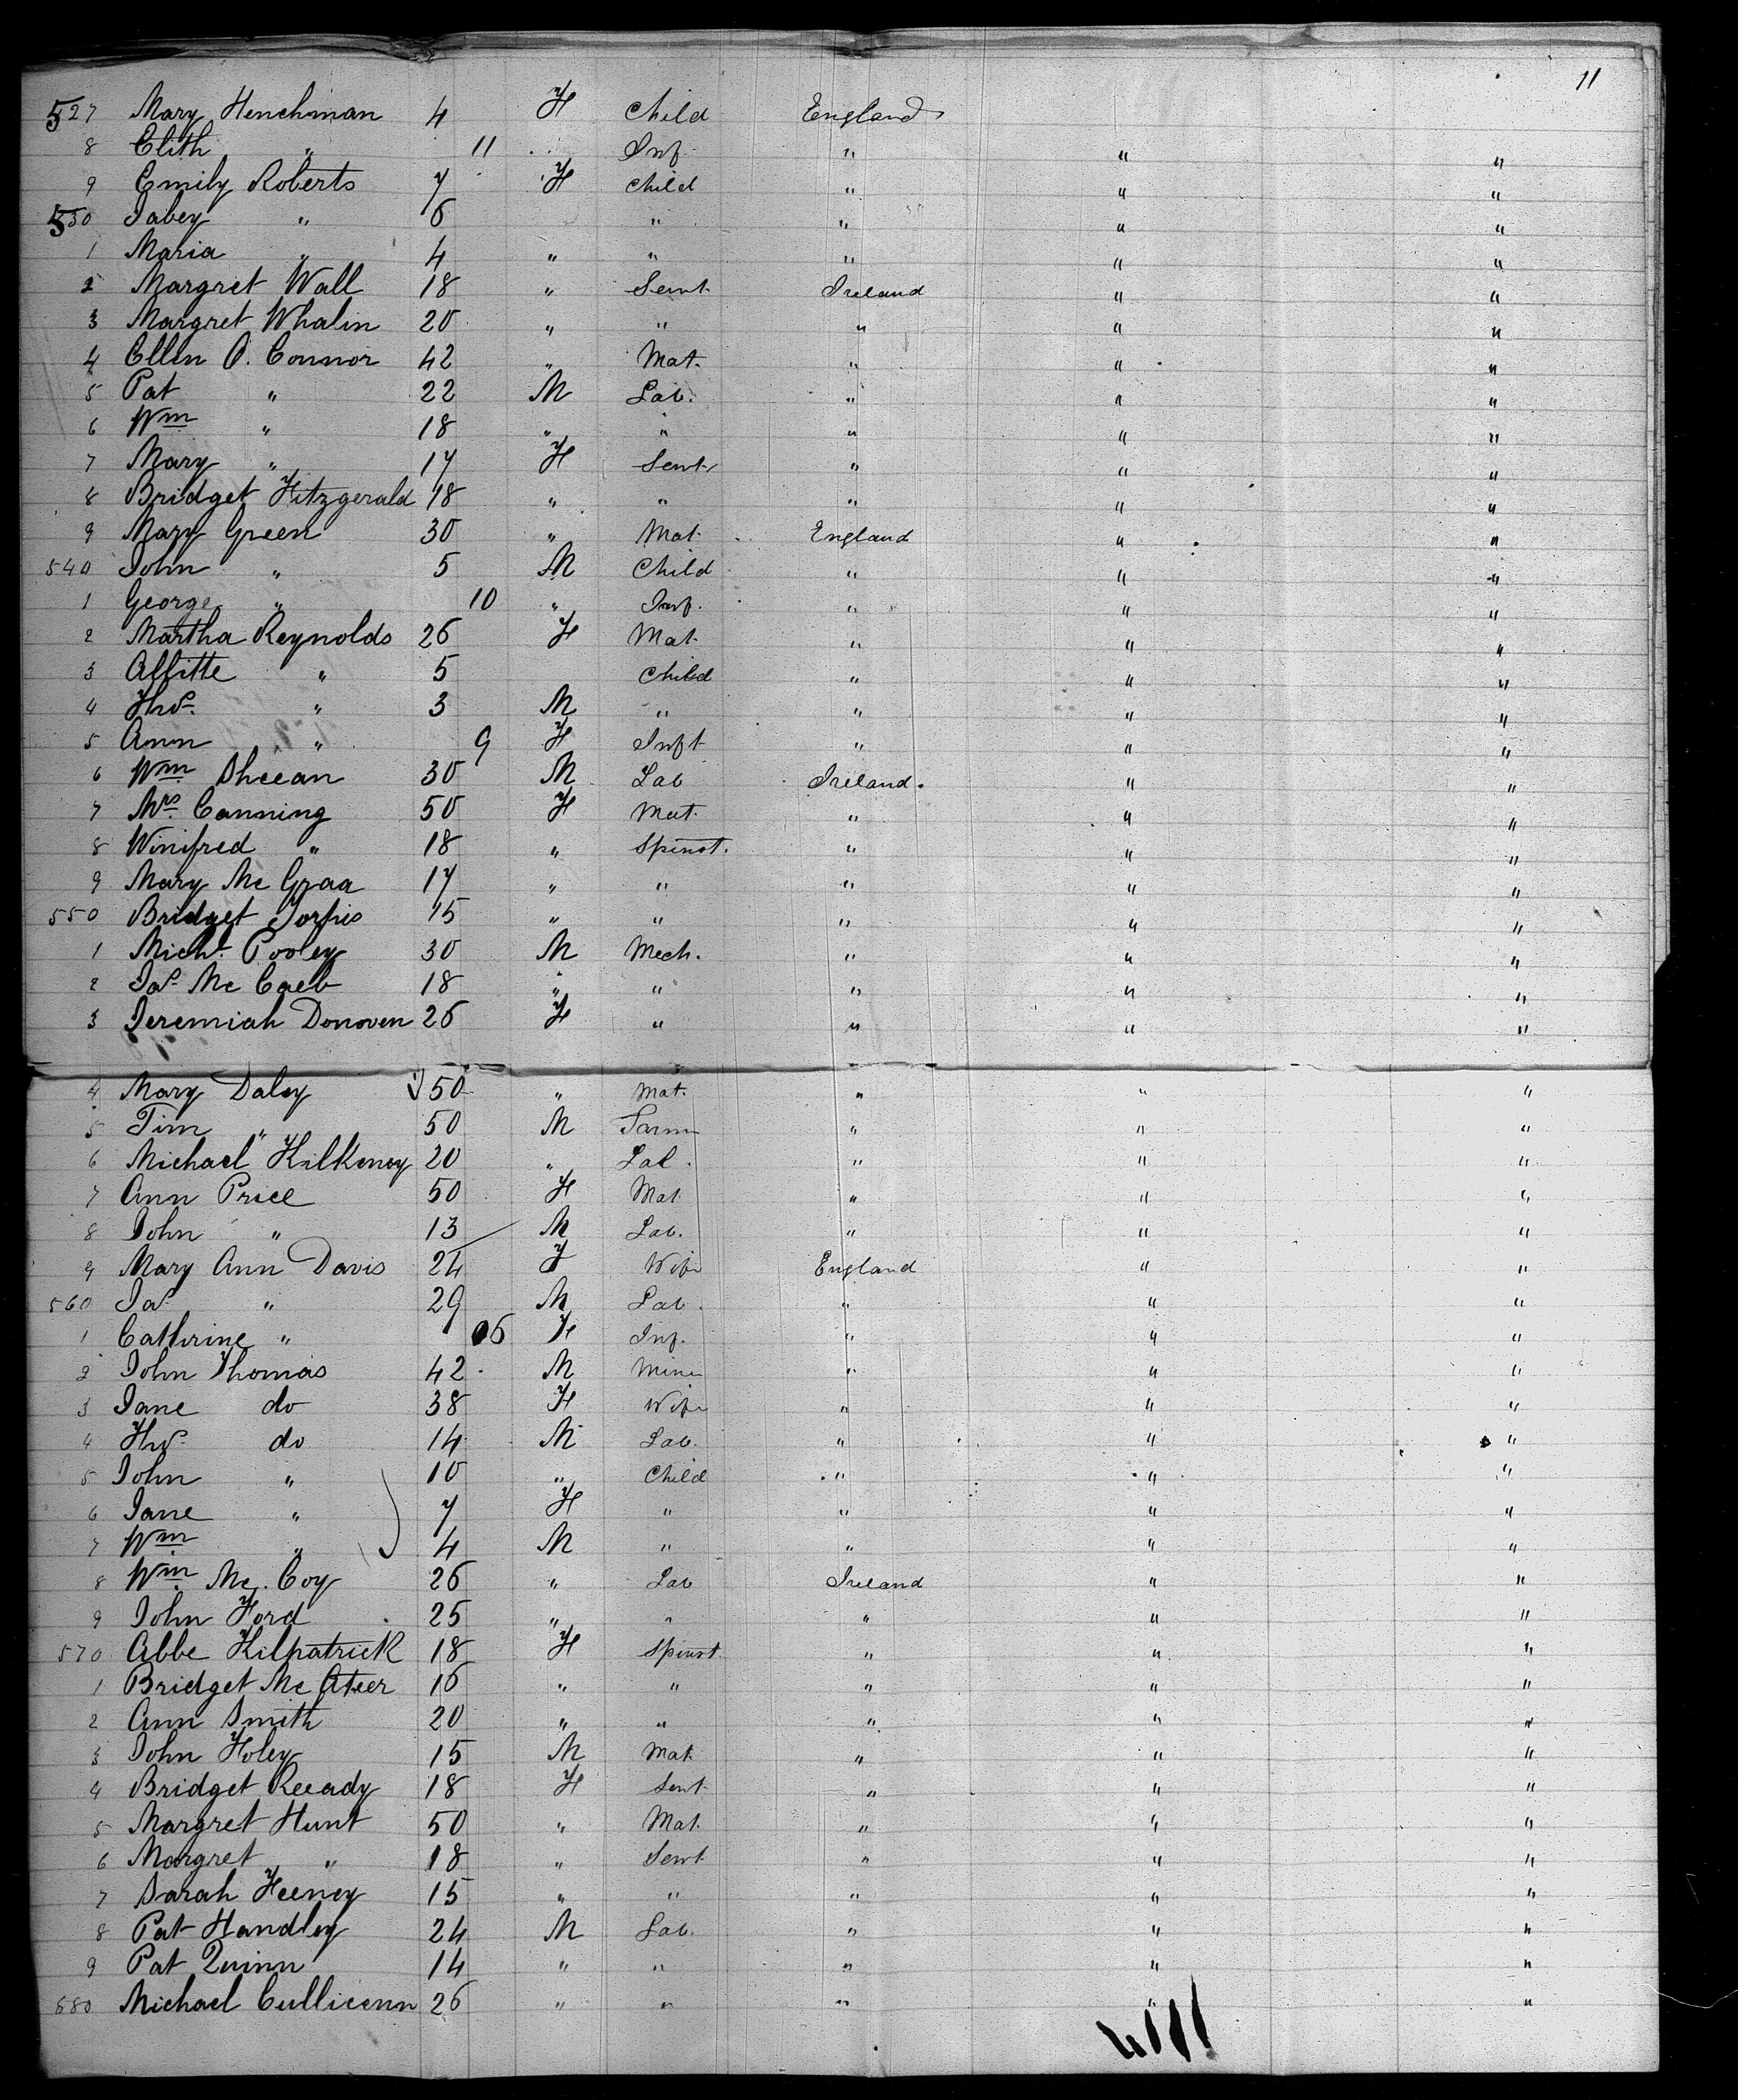 11
527 Mary Henchman 4 F Child England
8 Elith " 11 Inf. " " "
9 Emily Roberts 7 F Child " " "
530 Jabey " 6 " " " "
1 Maria " 4 " " " " "
2 Margret Wall 18 " Sernt Ireland " "
3 Margret Whalin 20 " " " " "
4 Ellen O. Connor 42 " Mat. " " "
5 Pat " 22 M Lab. " " "
6 Wm " 18 " " " " "
7 Mary " 17 F Sernt " " "
8 Bridget Fitzgerald 18 " " " " "
9 Mary Green 30 " Mat. England " "
540 John " 5 M Child " " "
1 George " 10 " Inf. " " "
2 Martha Reynolds 26 F Mat. " " "
3 Alfitte " 5 Child " " "
4 Thos. " 3 M " " " "
5 Ann " 9 F Inft " " "
6 Wm Sheean 30 M Lab Ireland. " "
7 Mrs Canning 50 F Mat. " " "
8 Winifred " 18 " Spinst. " " "
9 Mary Mc Graa 17 " " " " "
550 Bridget Torpis 15 " " " " "
1 Michl. Pooley 30 M Mech. " " "
2 Jas Mc Caeb 18 " " " " "
3 Jeremiah Donoven 26 F " " " "
4 Mary Daley 50 " Mat. " " "
5 Tim " 50 M Farm " " "
6 Michael Kilkeney 20 " Lab. " " "
7 Ann Price 50 F Mat " " "
8 John " 13 M Lab. " " "
9 Mary Ann Davis 24 F Wife England " "
560 Jas " 29 M Lab. " " "
1 Cathrine " 06 F Inf. " " "
2 John Thomas 42 M Mine " " "
3 Jane do 38 F Wife " " "
4 Thos. do 14 M Lab. " " "
5 John " 10 " Child " " "
6 Jane " 7 F " " " "
7 Wm " 4 M " " " "
8 Wm Mc. Coy 26 " Lab Ireland " "
9 John Ford 25 " " " " "
570 Abbe Kilpatrick 18 F Spinst. " " "
1 Bridget Mc Ateer 16 " " " " "
2 Ann Smith 20 " " " " "
3 John Foley 15 M Mat " " "
4 Bridget Reeady 18 F Sernt " " "
5 Margret Hunt 50 " Mat. " " "
6 Margret " 18 " Sernt " " "
7 Sarah Feeney 15 " " " " "
8 Pat Handley 24 M Lab. " " "
9 Pat Quinn 14 " " " " "
580 Michael Cullicenn 26 " " " " "